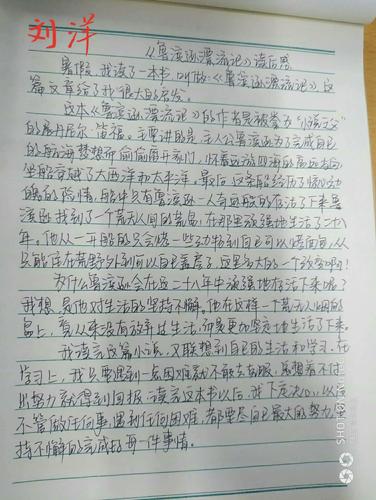 刘洋
《鲁滨逊漂流记》读后感
暑假,我读了一本书,叫做《鲁滨逊漂流记》,这
篇文章给了我很大的启发。
这本《鲁滨逊漂流记》的作者是被誉为"小说之父"
的丹尼尔·笛福。主要讲的是,主人公鲁滨逊为了完成自己
的航海梦想而偷偷离开家门,怀着远游四海的高远志向,
坐船穿越了大西洋和太平洋。最后,这条船经历了惊心动
魄的险情,船中只有鲁滨逊一人奇迹般的存活了下来。鲁
滨逊找到了个荒无人间的荒岛,在那里顽强地生活了二十八
年。他从一开始的只会烧一些动物到自己可以烤面包,从
只能住在荒野外到可以自己盖房子,这是多大的一个改变啊!
为什么鲁滨逊会在这二十八年中顽强地存活下来呢?
我想是他对生活的坚持不懈。他在这样一个荒无人烟的
岛上,看从来没有放弃过生活,而是更加坚定地生活了下来。
我读完这篇小说,又联想到自己的生活和学习。在
学习上,我只要遇到一点困难就不敢去克服,总想着不付
出努力就得到回报。读完这本书以后,我下定决心,以后
不管做任何事,遇到任何困难,都要尽自己最大的努力,坚
持不懈的完成好每一件事情。
SHOT ON